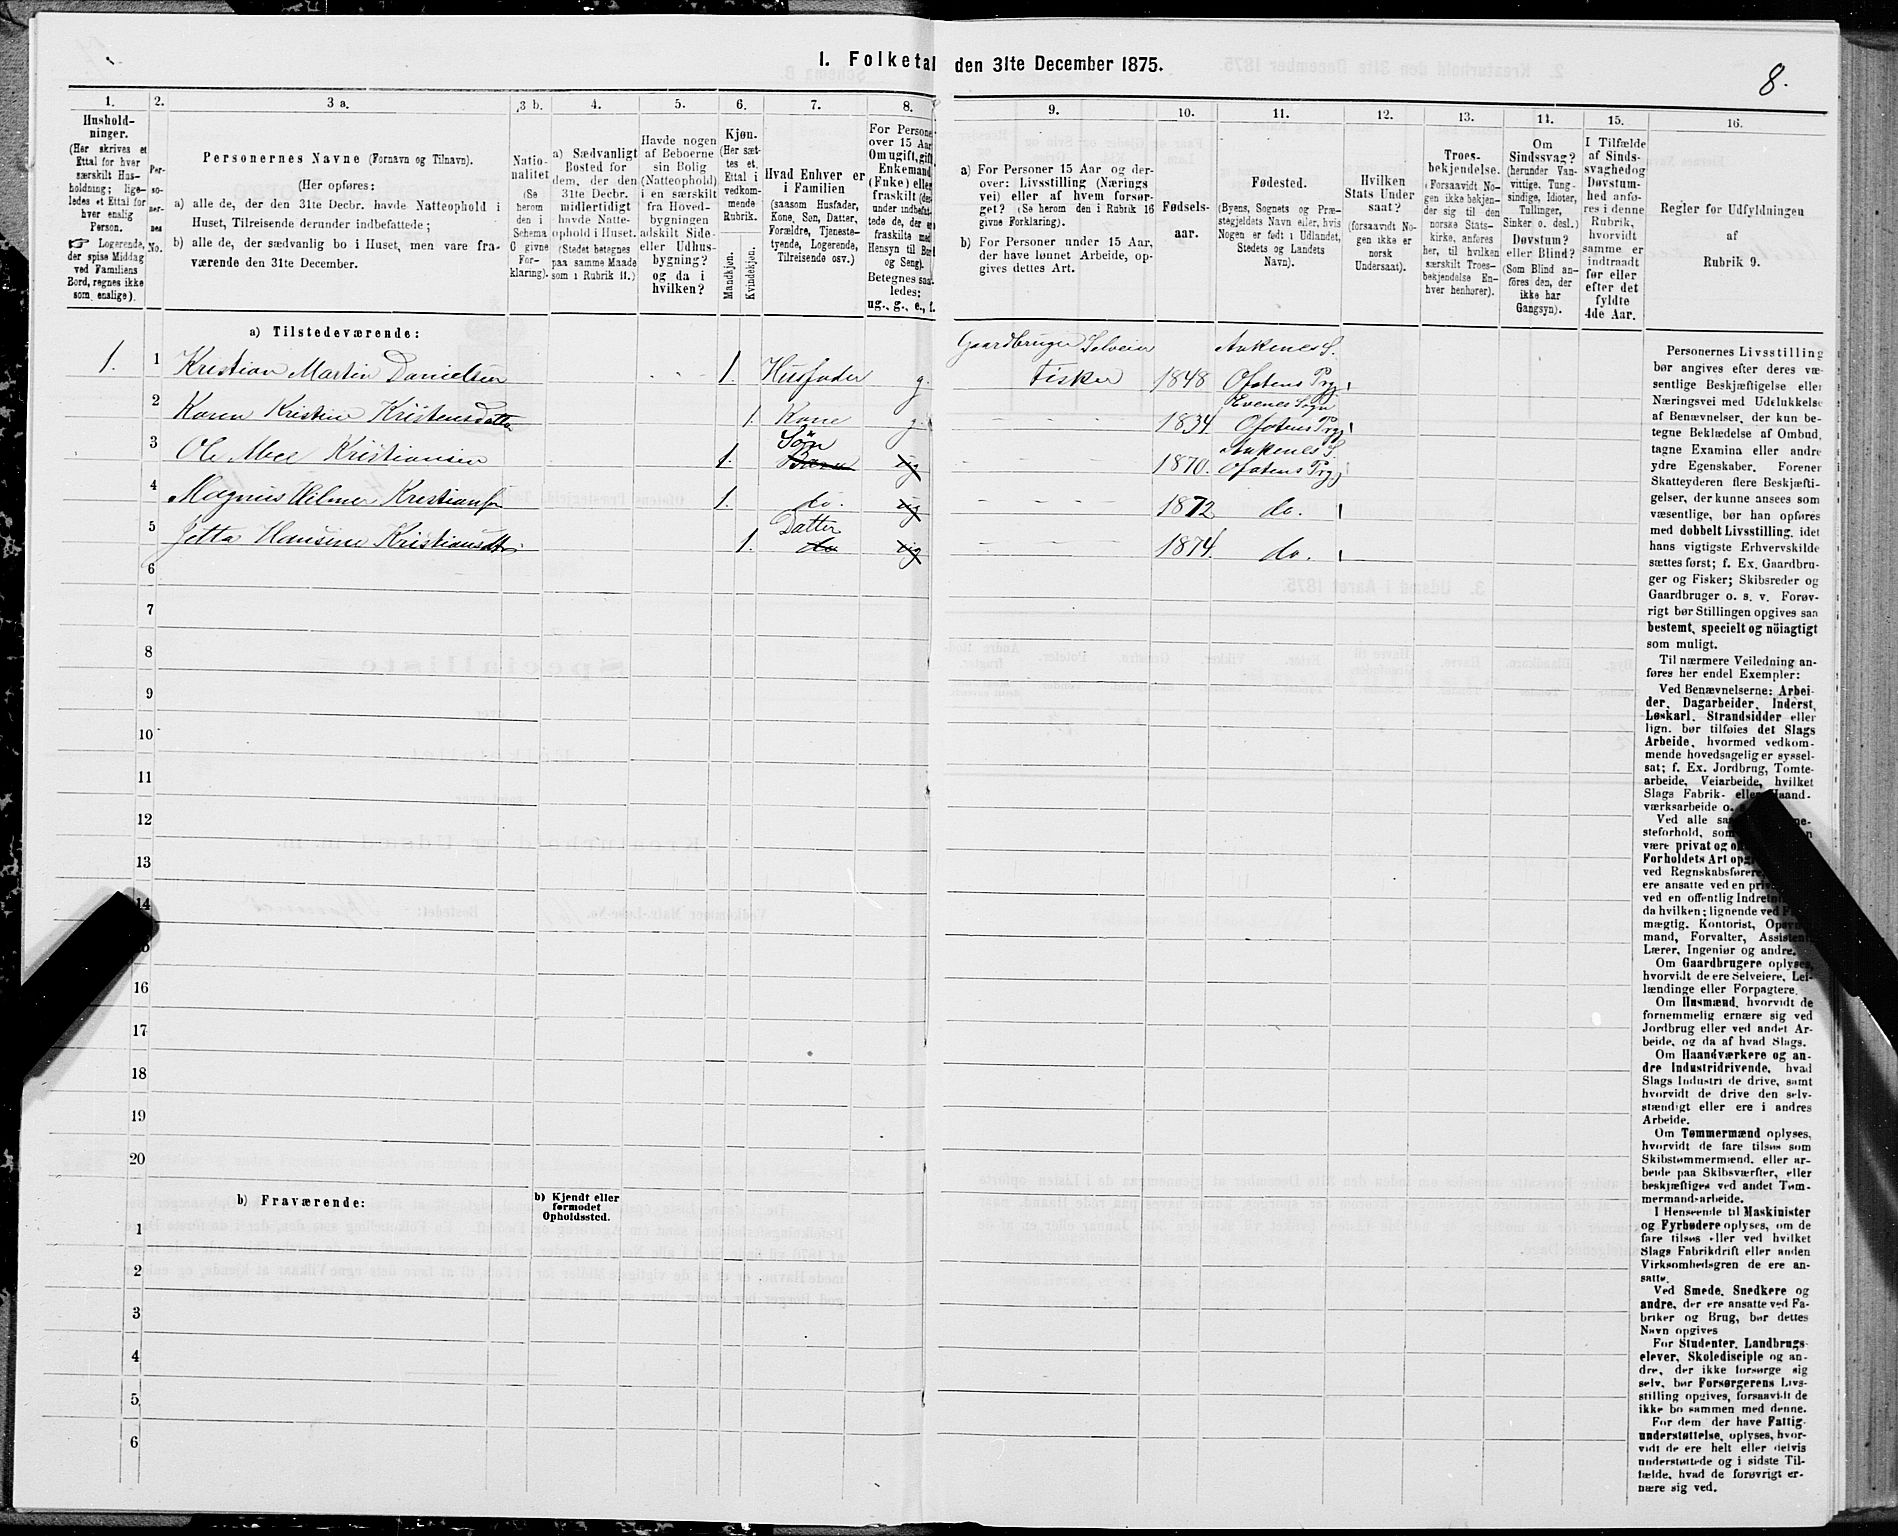 1. Folketal den 31te December 1875.
8.
1.
2.
3 a.
3 b.
4.
5.
6.
7.
8.
Hushold-
ninger.
(Her skrives et
Ettal for hver
særskilt Hus-
holdning; lige-
ledes et Ettal for
hver enslig
Person.
☞ Logerende,
der spise Middag
ved Familiens
Bord, regnes ikke
som enslige).
Per-
so-
ner-
nes
No.
Personernes Navne (Fornavn og Tilnavn).
(Her opføres:
a) alle de, der den 31te Decbr. havde Natteophold i
Huset, Tilreisende derunder indbefattede;
b) alle de, der sædvanlig bo i Huset, men vare fra-
værende den 31te December.
Natio-
nalitet
(Se
herom
den i
Schema
C givne
For-
klaring).
a) Sædvanligt
Bosted for
dem, der den
31te Decbr.
midlertidigt
havde Natte-
ophold i Huset.
(Stedet betegnes
paa samme Maade
som i Rubrik 11.)
Havde nogen
af Beboerne
sin Bolig
(Natteophold)
i en særskilt
fra Hoved-
bygningen
adskilt Side-
eller Udhus-
bygning?
og da i
hvilken?
Kjøn.
(Her sæt-
tes et
Ettal i
vedkom-
mende
Rubrik.
Mandkjøn.
Kvindekjøn.
Hvad Enhver er
i Familien
(saasom Husfader,
Kone, Søn, Datter,
Forældre, Tjeneste-
tyende, Logerende,
Tilreisende osv.)
For Persone
over 15 Aar
Om ugift, gift
Enkemand
(Enke) eller
fraskilt (der-
under indbefat-
tede de, der er
fraskilte med
Hensyn til Bord
og Seng).
Betegnes saa-
ledes:
ug., g., e., f.
9.
10.
11.
12.
13.
14.
15.
16.
a) For Personer 15 Aar og der-
over: Livsstilling (Nærings
vei) eller af hvem forsør-
get? (Se herom den i Rubrik 16
givne Forklaring).
b) For Personer under 15 Aar,
der have lønnet Arbeide, op-
gives dettes Art.
Fødsels-
aar.
Fødested.
(Byens, Sognets og Præ-
stegjeldets Navn eller, hvis
Nogen er født i Udlandet,
Stedets og Landets
Navn).
Hvilken
Stats Under
saat?
(forsaavidt No-
gen ikke er
norsk
Undersaat).
Troes-
bekjendelse.
(Forsaavidt No-
gen ikke bekjen-
der sig til den
norske Stats-
kirke, anføres
her, til hvilken
særskilt Troes-
bekjendelse En-
hver henhører).
Om
Sindssvag?
(herunder Van-
vittige, Tung-
sindige, Idioter,
Tullinger,
Sinker o. desl.)
Døvstum?
eller Blind?
(Som Blind an-
føres den, der
ikke har
Gangsyn).
I Tilfælde
af Sinds-
svaghed og
Døvstum-
hed anfø-
res i denne
Rubrik,
hvorvidt
samme er
indtraadt
før eller
efter det
fyldte
4de Aar.
Regler for Udfyldningen
af
Rubrik 9.
a) Tilstedeværende:
1. 1 Kristian Martin Danielsen 1. Husfader g. Gaardbruger Selveier Fisker 1848 Ankenes S. Ofotens Prg.
2 Karen Kristine Kristensdatter 1. Kone g. 1834 Evenes Sogn Ofotens Prg.
3 Ole Kristiansen 1. Søn Barn ug 1870. Ankenes S. Ofotens Prg.
4 Magnus Hilmer Kristiansen 1. do. ug 1872 do.
5 Jetta Hansine Kristiansdtr. 1. Datter do ug 1874. do.
6
7
8
9
10
11
12
13
14
16
17
18
19
20
b) Fraværende:
b) Kjendt eller
formodet
Opholdssted.
1
2
3
4
5
6
Personernes Livsstilling
bør angives efter deres væ-
sentlige Beskjæftigelse eller
Næringsvei med Udelukkelse
af Benævnelser, der kun be-
tegne Beklædelse af Ombud,
tagne Examina eller andre
ydre Egenskaber. Forener
Skatteyderen flere Beskjæfti-
gelser, der kunne ansees som
væsentlige, bør han opføres
med dobbelt Livsstilling, idet
hans vigtigste Erhvervskilde
sættes først; f. Ex. Gaardbru-
ger og Fisker; Skibsreder og
Gaardbruger o. s. v. Forøv-
rigt bør Stillingen opgives saa
bestemt, specielt og nöiagtigt
som muligt.
Til nærmere Veiledning an-
føres her endel Exempler:
Ved Benævnelserne: Arbei-
der, Dagarbeider, Inderst,
Løskarl, Strandsidder eller
lign. bør tilføies det Slags
Arbeide, hvormed vedkom-
mende hovedsagelig er syssel-
sat; f. Ex. Jordbrug, Tomte-
arbeide, Veiarbeide, hvilket
Slags Fabrik- eller Haand-
værksarbeide o.
Ved alle
steforhold,
være privat og
Forholdets Art
ved Regnskabsførere,
ere ansatte ved en
ved en offentlig
da hvilken; lignende ved
mægtig, Kontorist,
mand, Forvalter, Assistent,
Lærer, Ingeniør og andre.
Om Gaardbrugere oplyses,
hvorvidt de ere Selveiere, Lei-
lændinge eller Forpagtere.
Om Husmænd, hvorvidt de
fornemmelig ernære sig ved
Jordbrug eller ved andet Ar-
beide, og da af hvad Slags.
Om Haandværkere og an-
dre Industridrivende, hvad
Slags Industri de drive, samt
hvorvidt de drive den selv-
stændigt eller ere i andres
Arbeide.
Om Tømmermænd oplyses,
hvorvidt de fare tilsøs som
Skibstømmermænd, eller ar-
beide paa Skibsværfter, eller
beskjæftiges ved andet Tøm-
mermandsarbeide.
I Henseende til Maskinister
og Fyrbødere oplyses, om de
fare tilsøs eller ved hvilket
Slags Fabrikdrift eller anden
Virksomhedsgren de ere an-
satte.
Ved Smede, Snedkere og
andre, der ere ansatte ved Fa-
briker og Brug, bør dettes
Navn opgives
For Studenter, Landbrugs-
elever, Skoledisciple og an-
dre, der ikke forsørge sig
selv, bør Forsørgerens Livs-
stilling opgives, forsaavidt de
ikke bo sammen med denne.
For dem, der have Fattig-
understøttelse, oplyses, hvor-
vidt de ere helt eller delvis
understøttede og i sidste Til-
fælde, hvad de forøvrigt er-
nære sig ved.